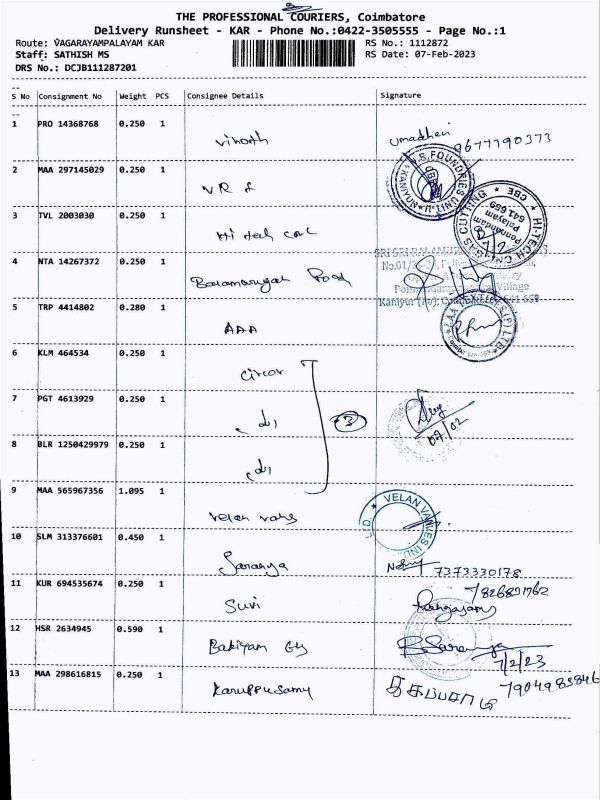 THE PROFESSIONAL COURIERS, Coimbatore
Delivery Runsheet - KAR - Phone No.:0422-3505555 - Page No.:1
Route: VAGARAYAMPALAYAM KAR RS No.: 1112872
Staff: SATHISH MS RS Date: 07-Feb-2023
DRS No.: DCJB111287201
S No Consignment No Weight PCS Consignee Details Signature
1 PRO 14368768 0.250 1 Vinoth Umadhevi 9677790373
2 MAA 297145029 0.250 1 V R F
3 TVL 2003030 0.250 1 Hi tech
HI-TECH CNC GAS CUTTING * CBE *
Ponnandam Palayam 641 659
4 NTA 14267372 0.250 1 Balamurugan
5 TRP 4414802 0.280 1 AAA
6 KLM 464534 0.250 1 Circor
7 PGT 4613929 0.250 1 3 07/02
8 BLR 1250429979 0.250 1
9 MAA 565967356 1.095 1 Velan
VELAN VALVES IND
10 SLM 313376601 0.450 1 Saranya 7373330178
11 KUR 694535674 0.250 1 Suvi Rangasamy
12 HSR 2634945 0.590 1 Bakiyam 7/2/23
13 MAA 298616815 0.250 1 Karuppusamy 7904983846